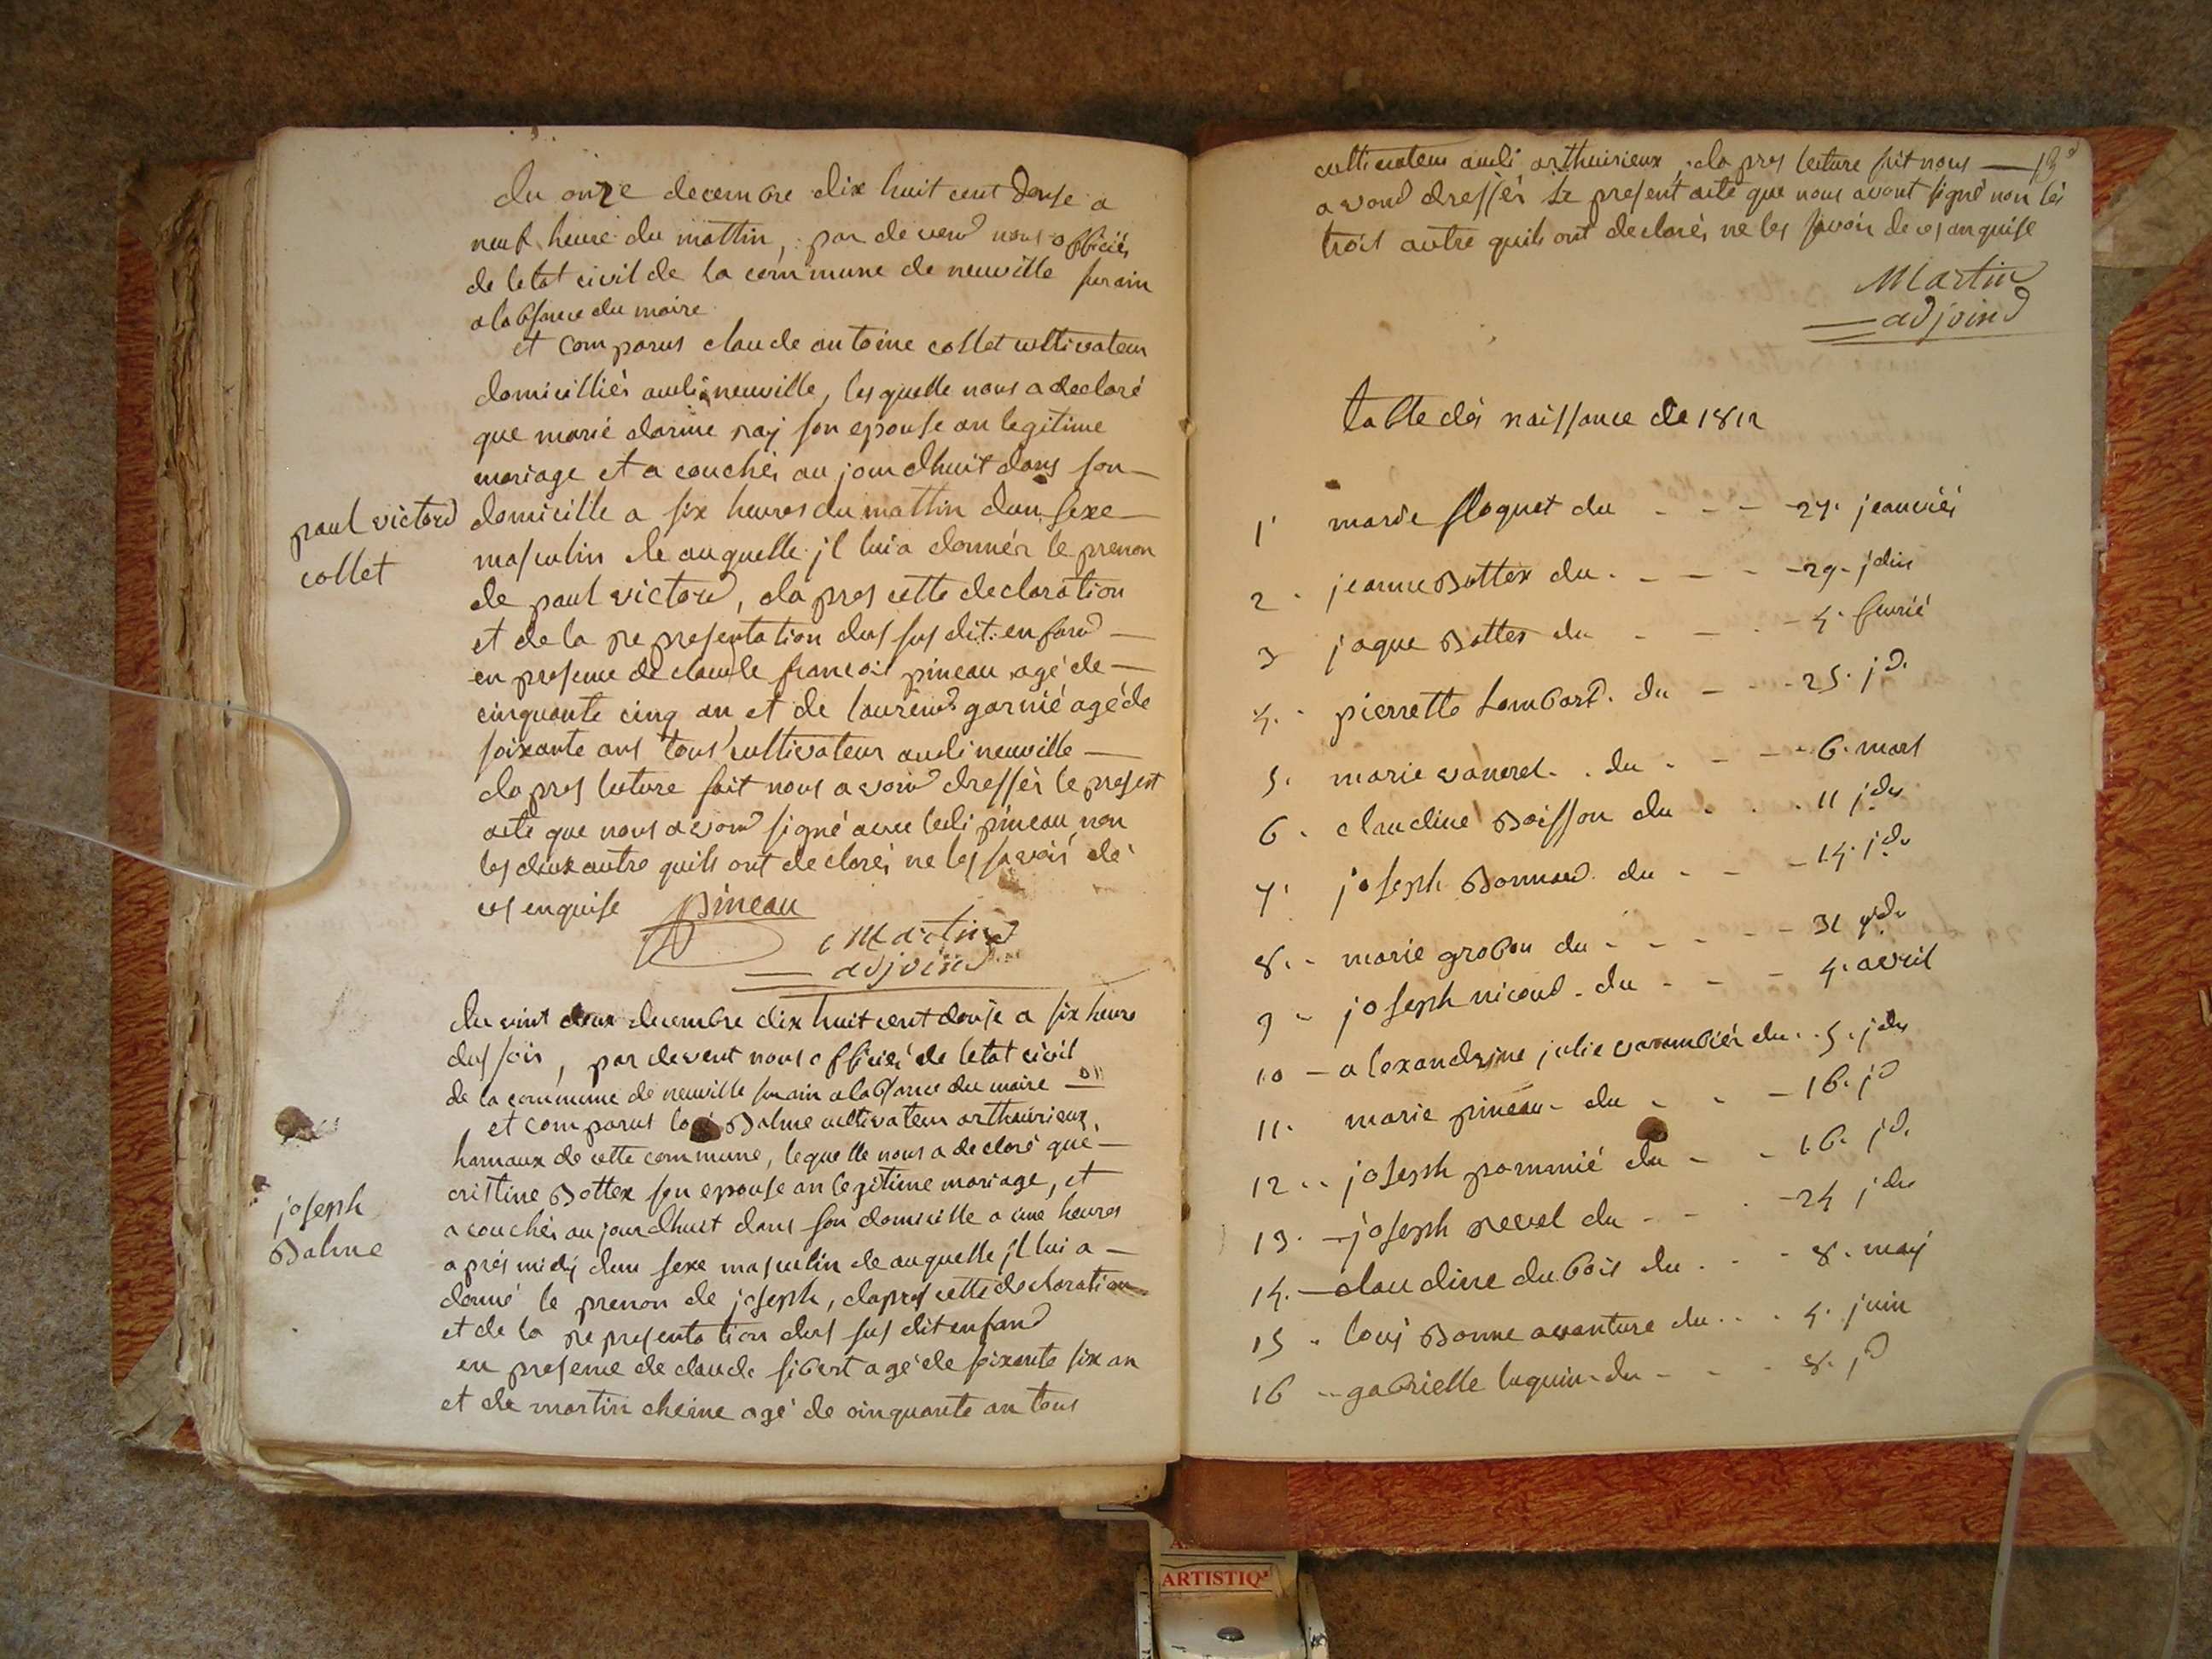 du onze decembre dix huit cent douse a
neuf heure du mattin, par de vend nous officiés
de letat civil de la commune de neuville sur ain
a labsance du maire
et comparus claude antoine collet cultivateur
domicilliés audi neuville, les quelle nous a declaré
que marié darine ray son epouse an legitime
mariage et a couchés au jourdhuit dans son
paul victord
collet
domicille a six heures du mattin dun sexe
masculin de auquelle jl lui a donnér le prenon
de paul victord, dapres cette declaration
et de la represantation dus sus dit enfand
en presence de claude francois pineau agé de
cinquante cinq an et de laurend garnié agé de
soixante ans tous cultivateur audi neuville
dapres lecture fait nous avond dressér le present
acte que nous avond signé avec ledi pineau non
les deux autre quils ont declarés ne les savoir dé
ces enquise pineau
Martin
adjoind
du vint deux decembre dix huit cent douse a six heure
dus soir, par devent nous officiér de letat civil
de la commune de neuville sur ain a labsance du maire
et comparus Balme cultivateur arthuirieux
hamaux de cette commune, lequelle nous a declaré que
cristine Bottex son epouse an legitime mariage, et
a couchés au jourdhuit dans son domicille a une heures
joseph
Balme
aprés midÿ dun sexe masculin de auquelle jl lui a
donné le prenon de joseph, dapres cette declaration
et de la representation dus sus dit enfand
en presence de claude sibert agé de soixante six an
et de martin cheine agé de cinquante an tous
cultivateur audi arthuirieux, dapres lecture fait nous
avond dressér le present acte que nous avont signé non les
trois autre quils ont declarés ne les savoir de ces anquise
Martin
adjoind
table dés naissance de 1812
1 marie floquet du 27. jeanviér
2 jeanne Bottex du 29. jdus
3 jaque Bottex du 4. fevrié
4. pierrette Lombard. du 25. jd.
5. marie vancrel. du 6. mars
6. claudine Boisson du 11 jdu
7. joseph Bonnard. du 14. jdu
8. marie grobon du 31 jdu
9 joseph nicoud. du 4. avril
10 alexandrine julie varambiér du 5. jdu
11. marie pineau du 16. jd
12 joseph pommié du 16. jd.
13. joseph revel du 24 jdu
14. claudine dubois du 8. maÿ
15 louj Bonne avanture du 4. juin
16 gabrielle luquin du 8. jd
ARTISTIQ